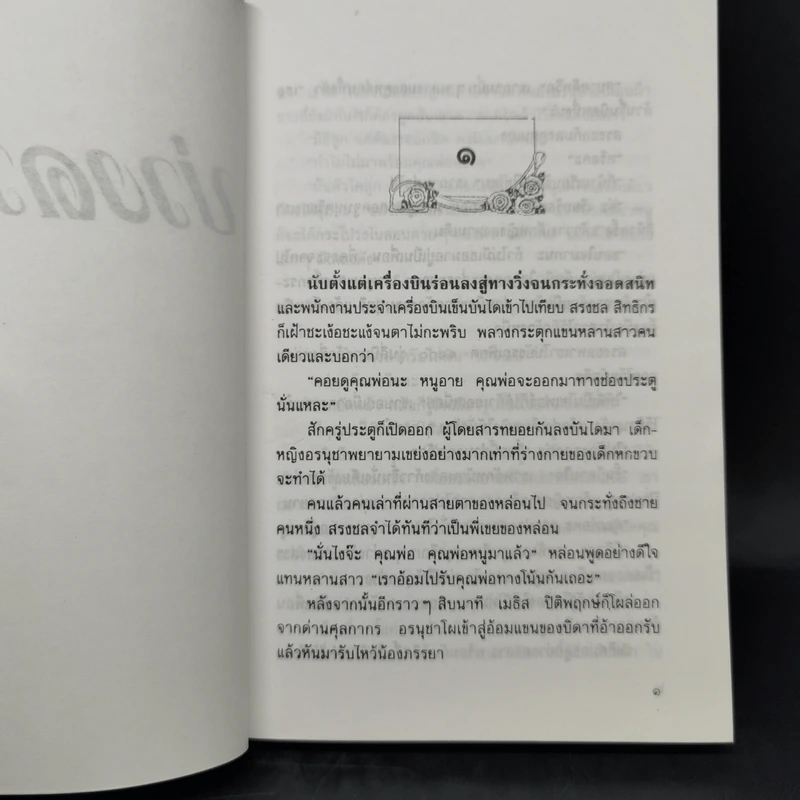 ๑
นับตั้งแต่เครื่องบินร่อนลงสู่ทางวิ่งจนกระทั่งจอดสนิท
และพนักงานประจำเครื่องบินเข็นบันไดเข้าไปเทียบ สรงชล สิทธิกร
ก็เฝ้าชะเง้อชะแง้จนตาไม่กะพริบ พลางกระตุกแขนหลานสาวคน
เดียวและบอกว่า
“คอยดูคุณพ่อนะ หนูอาย คุณพ่อจะออกมาทางช่องประตู
นั่นแหละ”
สักครู่ประตูก็เปิดออก ผู้โดยสารทยอยกันลงบันไดมา เด็ก-
หญิงอรนุชาพยายามเขย่งอย่างมากเท่าที่ร่างกายของเด็กหกขวบ
จะทำได้
คนแล้วคนเล่าที่ผ่านสายตาของหล่อนไป จนกระทั่งถึงชาย
คนหนึ่ง สรงชลจำได้ทันทีว่าเป็นพี่เขยของหล่อน
“นั่นไงจ๊ะ คุณพ่อ คุณพ่อหนูมาแล้ว” หล่อนพูดอย่างดีใจ
แทนหลานสาว “เราอ้อมไปรับคุณพ่อทางโน้นกันเถอะ”
หลังจากนั้นอีกราวๆ สิบนาที เมธิส ปิติพฤกษ์ก็โผล่ออก
จากด่านศุลกากร อรนุชาโผเข้าสู่อ้อมแขนของบิดาที่อ้าออกรับ
แล้วหันมารับไหว้น้องภรรยา
๑